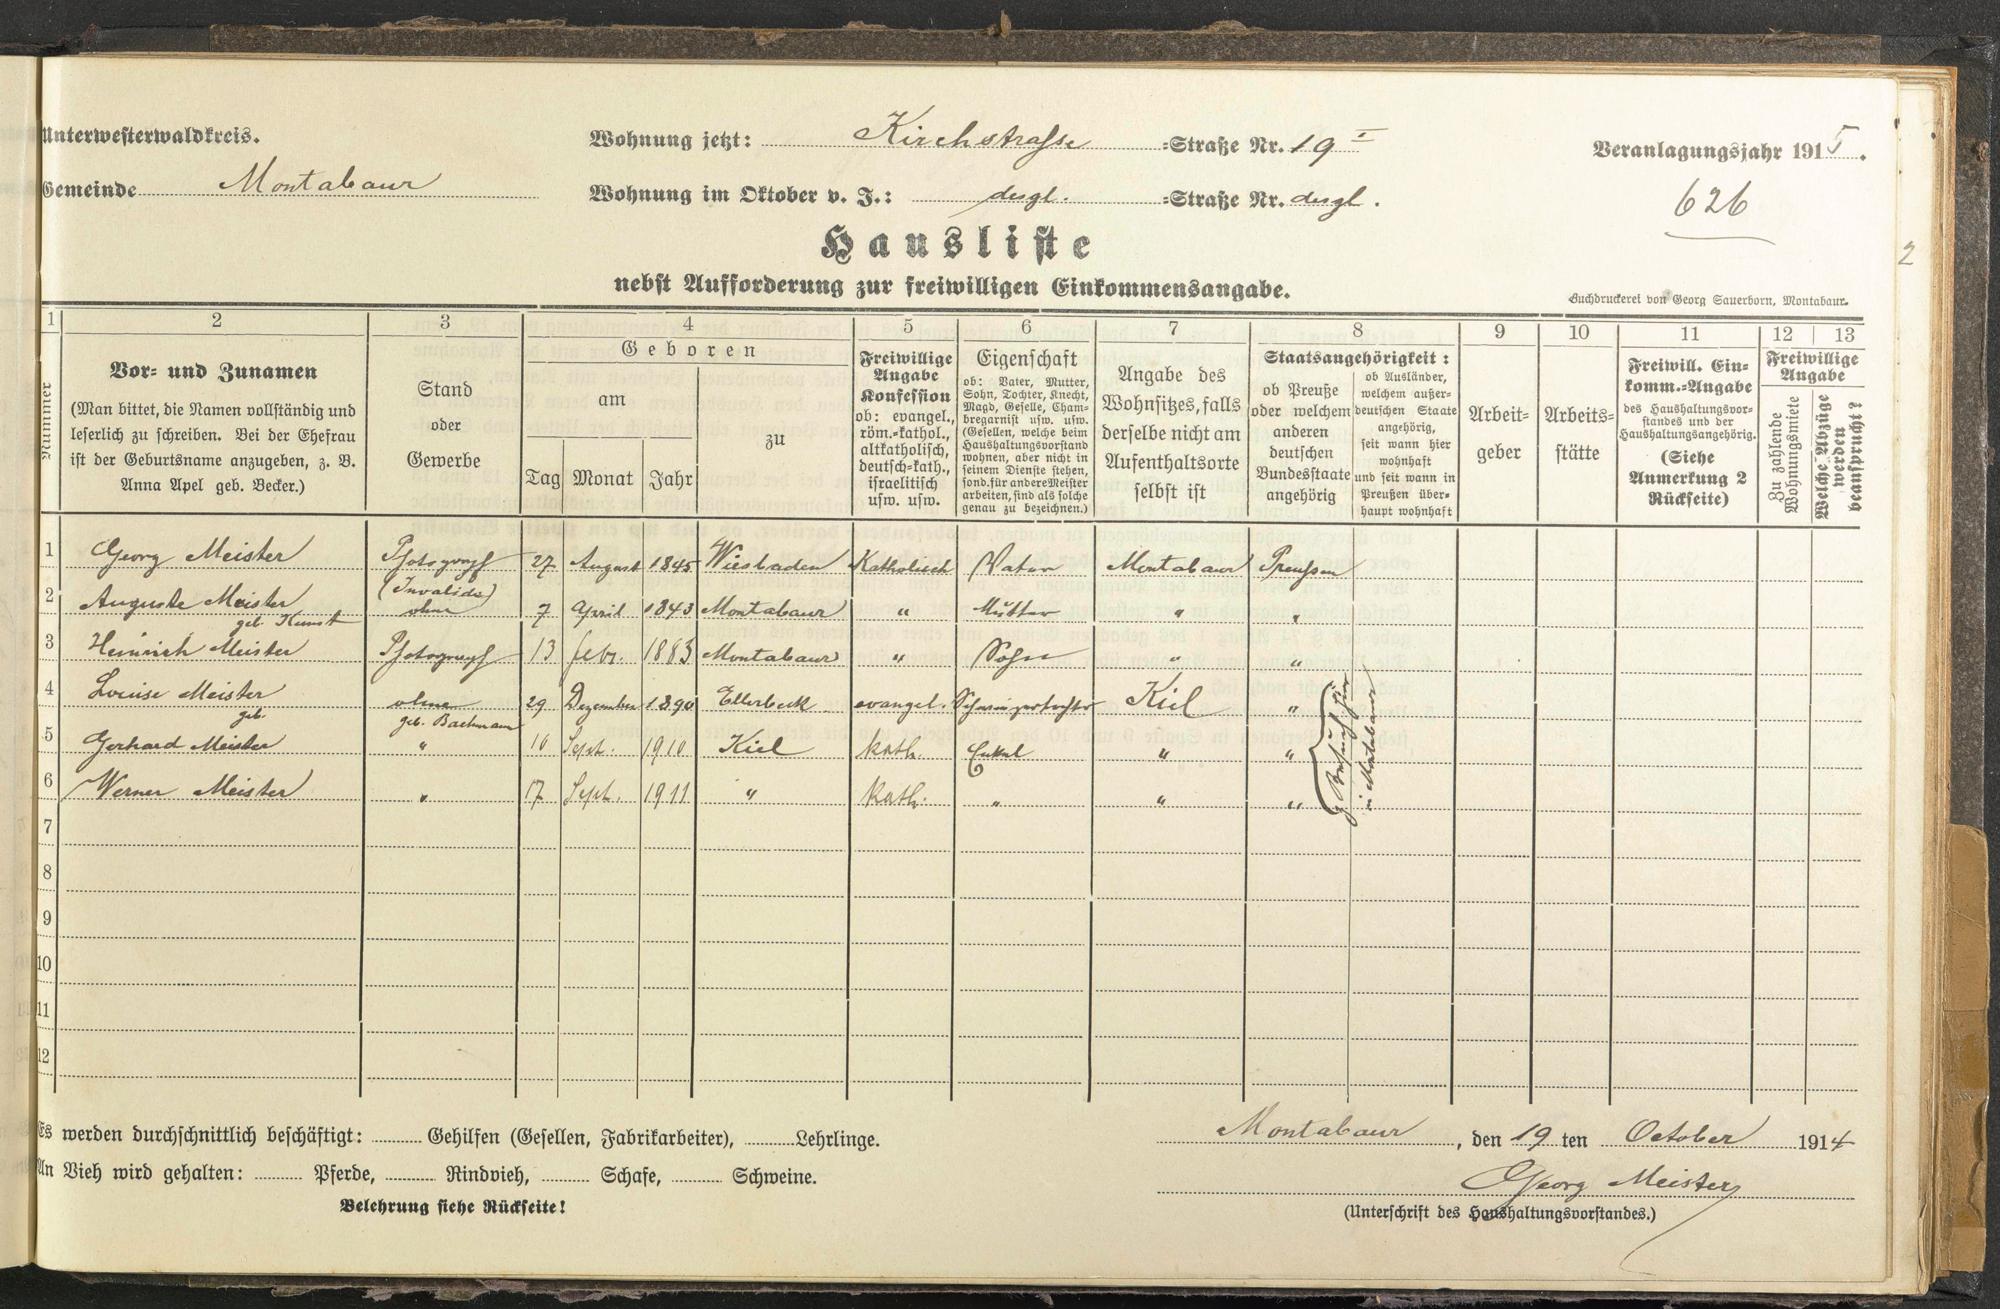 Unterwesterwaldkreis.
Wohnung jetzt: Kirchstrasse =Straße Nr. 19 I
Veranlagungsjahr 1915.
Gemeinde Montabaur
Wohnung im Oktober v. J.: desgl. =Straße Nr. desgl.
626
2
Hausliste
nebst Aufforderung zur freiwilligen Einkommensangabe.
Buchdruckerei von Georg Sauerborn, Montabaur.
1 2 3 4 5 6 7 8 9 10 11 12 13
Nummer
Vor- und Zunamen
(Man bittet, die Namen vollständig und
leserlich zu schreiben. Bei der Ehefrau
ist der Geburtsname anzugeben, z. B.
Anna Apel geb. Becker.)
Stand
oder
Gewerbe
Geboren
am
zu
Tag Monat Jahr
Freiwillige
Angabe
Konfession
ob: evangel.,
röm.-kathol.,
altkatholisch,
deutsch-kath.,
israelitisch
usw. usw.
Eigenschaft
ob: Vater, Mutter,
Sohn, Tochter, Knecht,
Magd, Geselle, Cham-
bregarnist usw. usw.
(Gesellen, welche beim
Haushaltungsvorstand
wohnen, aber nicht in
seinem Dienste stehen,
sond. für andere Meister
arbeiten, sind als solche
genau zu bezeichnen.)
Angabe des
Wohnsitzes, falls
derselbe nicht am
Aufenthaltsorte
selbst ist
Staatsangehörigkeit:
ob Preuße
oder welchem
anderen
deutschen
Bundesstaate
angehörig
ob Ausländer,
welchem außer-
deutschen Staate
angehörig,
seit wann hier
wohnhaft
und seit wann in
Preußen über-
haupt wohnhaft
Arbeit-
geber
Arbeits-
stätte
Freiwill. Ein-
komm.-Angabe
des Haushaltungsvor-
standes und der
Haushaltungsangehörig.
(Siehe
Anmerkung 2
Rückseite)
Freiwillige
Angabe
Zu zahlende
Wohnungsmiete
Welche Abzüge
werden
beansprucht?
1 Georg Meister Photograph (Invalide) 27 August 1845 Wiesbaden Katholisch Vater Montabaur Preussen
2 Auguste Meister geb. Kunst ohne 7 April 1843 Montabaur " Mutter " "
3 Heinrich Meister Photograph 13 febr. 1883 Montabaur " Sohn " "
4 Louise Meister geb. ohne geb. Bachmann 29 Dezember 1890 Ellerbeck evangel. Schwiegertochter Kiel "
5 Gerhard Meister " 10 Sept. 1910 Kiel kath. Enkel " "
6 Werner Meister " 17 Sept. 1911 " kath. " " "
z. Besuch hier
in Montabaur
7
8
9
10
11
12
Es werden durchschnittlich beschäftigt: Gehilfen (Gesellen, Fabrikarbeiter), Lehrlinge.
Montabaur, den 19 ten October 1914
An Vieh wird gehalten: Pferde, Rindvieh, Schafe, Schweine.
Georg Meister
Belehrung siehe Rückseite!
(Unterschrift des Haushaltungsvorstandes.)